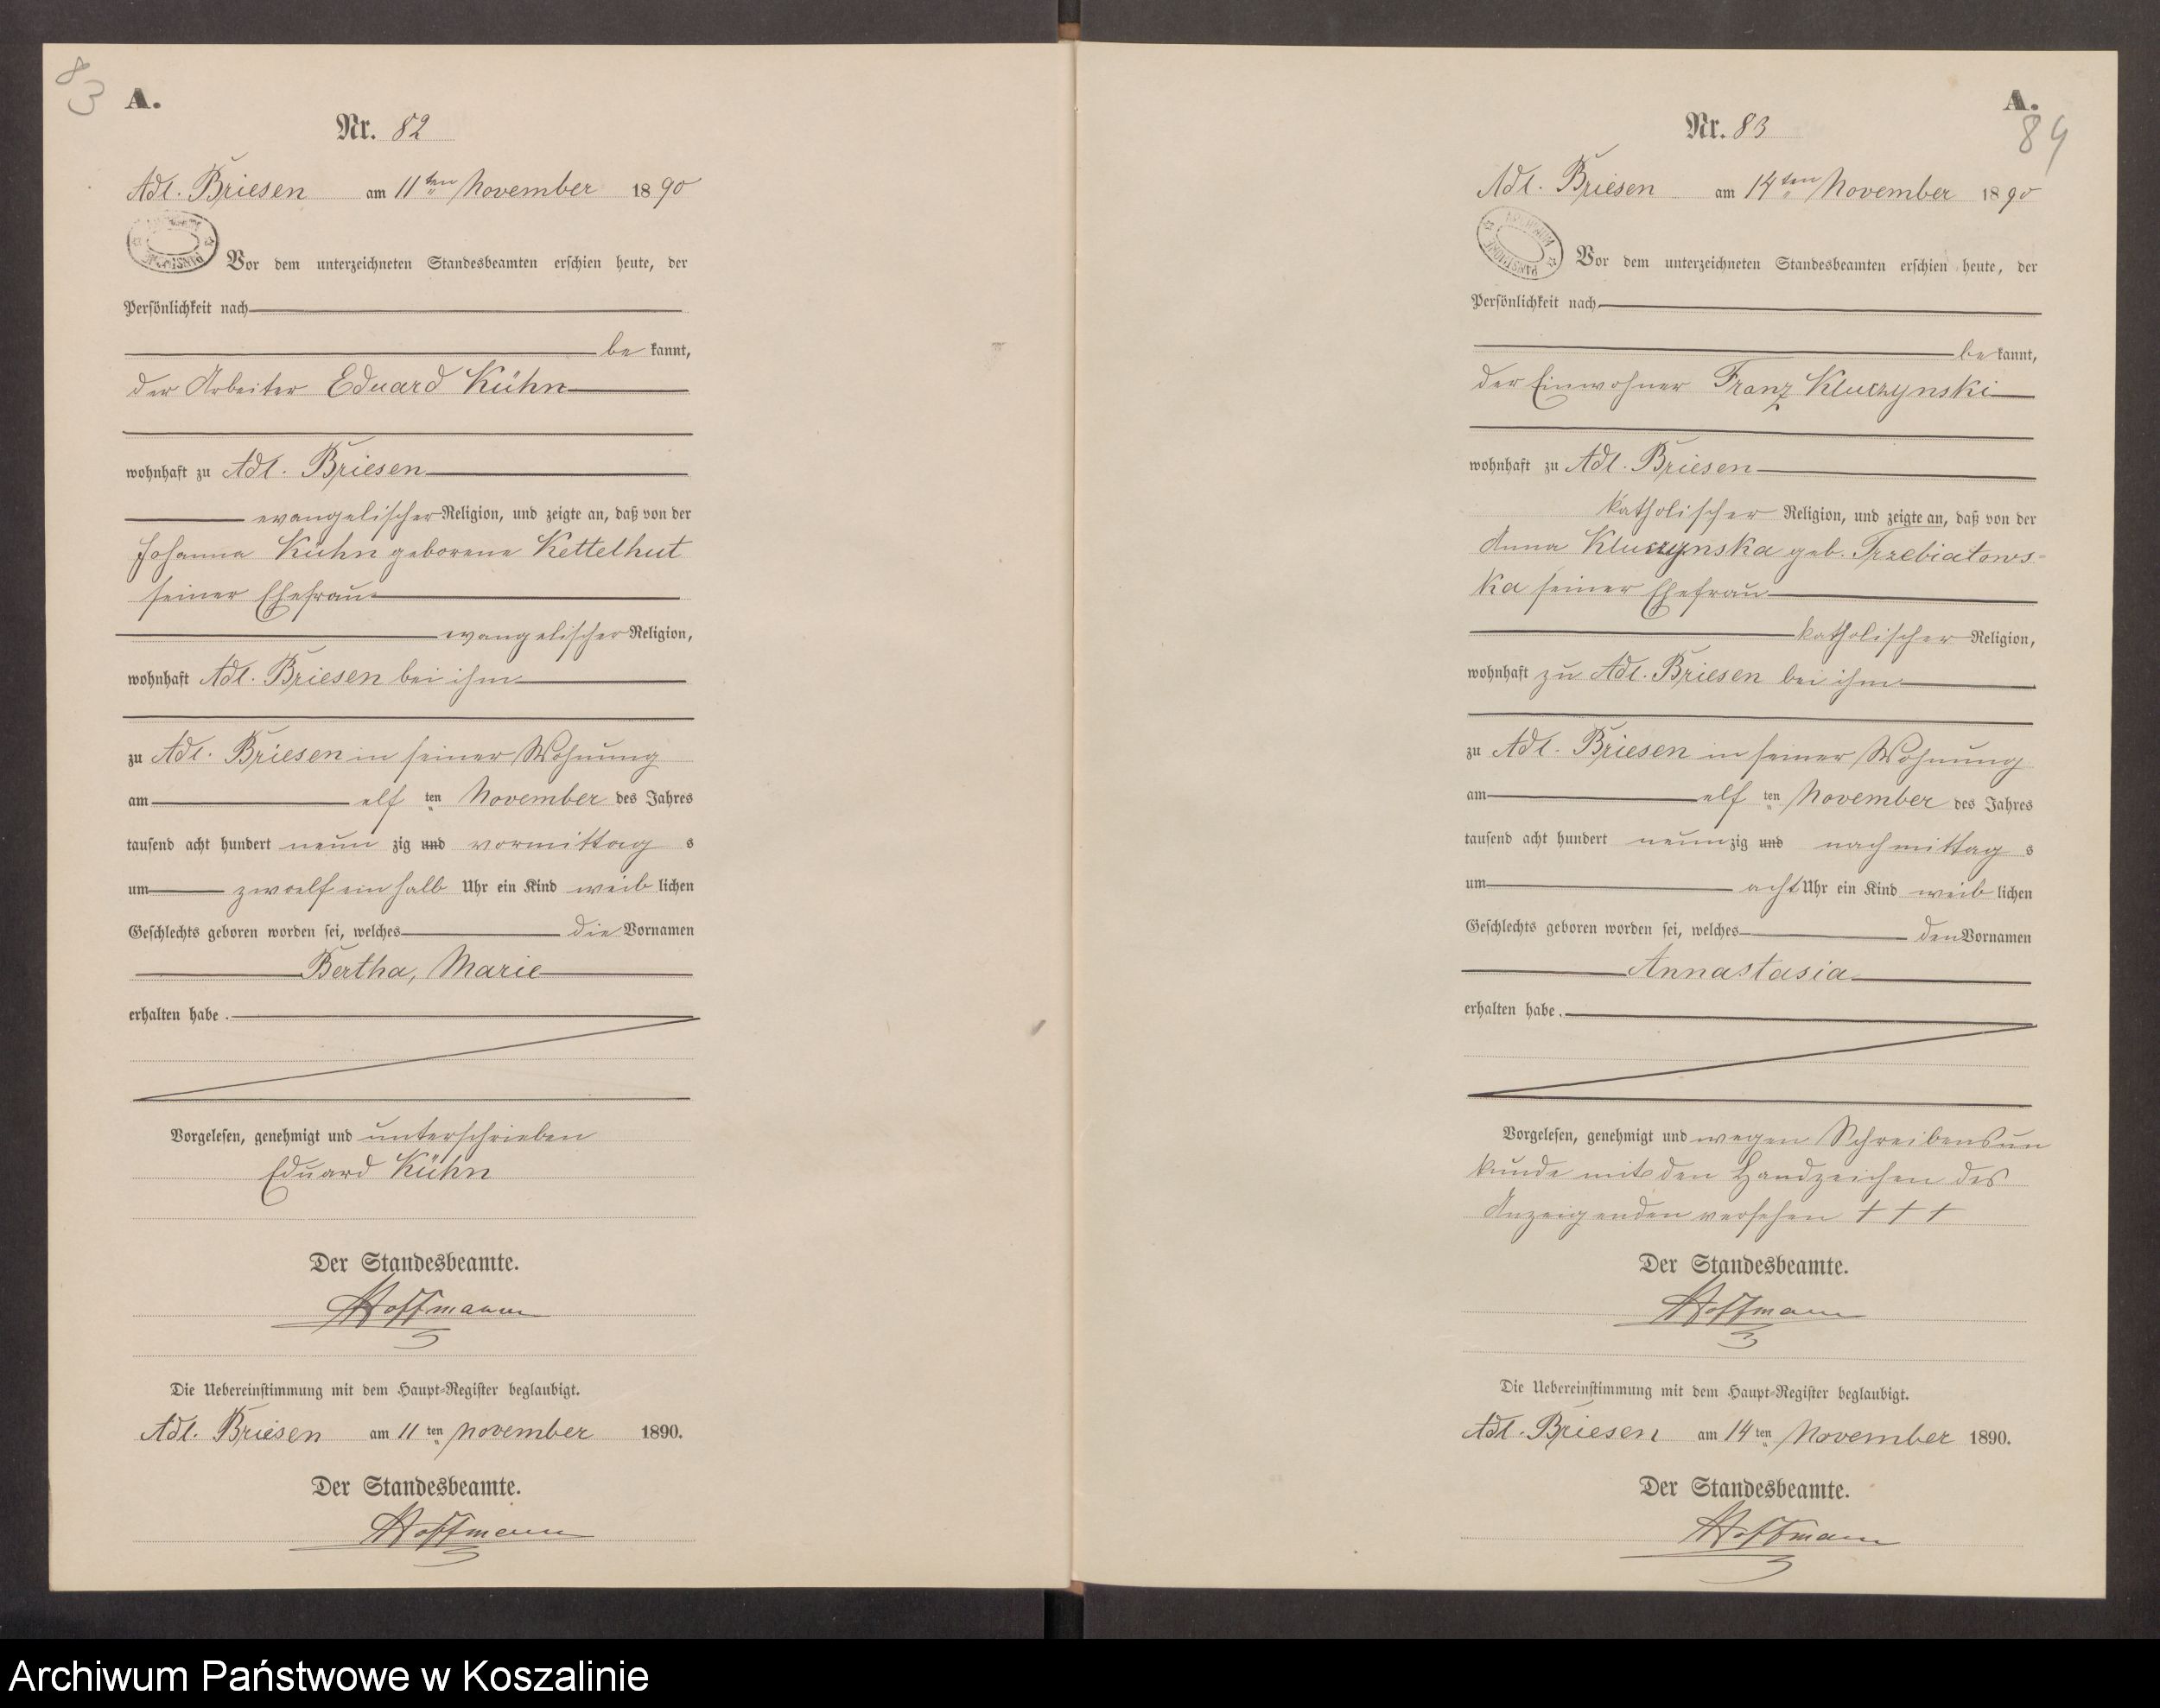 83
A.
Nr. 82
Adl. Briesen am 11ten November 1890
Vor dem unterzeichneten Standesbeamten erschien heute, der
Persönlichkeit nach
be kannt,
der Arbeiter Eduard Kühn
wohnhaft zu Adl. Briesen
evangelischer Religion, und zeigte an, daß von der
Johanna Kühn geborene Kettelhut
seiner Ehefrau
evangelischer Religion,
wohnhaft Adl. Briesen bei ihm
zu Adl. Briesen in seiner Wohnung
am elf ten November des Jahres
tausend acht hundert neun zig und vormittag s
um zwoelf ein halb Uhr ein Kind weib lichen
Geschlechts geboren worden sei, welches die Vornamen
Bertha, Marie
erhalten habe.
Vorgelesen, genehmigt und unterschrieben
Eduard Kühn
Der Standesbeamte.
Hoffmann
Die Uebereinstimmung mit dem Haupt-Register beglaubigt.
Adl. Briesen am 11 ten November 1890.
Der Standesbeamte.
Hoffmann
A.
84
Nr. 83
Adl. Briesen am 14ten November 1890
Vor dem unterzeichneten Standesbeamten erschien heute, der
Persönlichkeit nach
be kannt,
der Einwohner Franz Kluczynski
wohnhaft zu Adl. Briesen
katholischer Religion, und zeigte an, daß von der
Anna Kluczynska geb. Trzebiatows-
ka seiner Ehefrau
katholischer Religion,
wohnhaft zu Adl. Briesen bei ihm
zu Adl. Briesen in seiner Wohnung
am elf ten November des Jahres
tausend acht hundert neun zig und nachmittag s
um acht Uhr ein Kind weib lichen
Geschlechts geboren worden sei, welches den Vornamen
Annastasia
erhalten habe.
Vorgelesen, genehmigt und wegen Schreibensun
kunde mit den Handzeichen des
Anzeigenden versehen + + +
Der Standesbeamte.
Hoffmann
Die Uebereinstimmung mit dem Haupt-Register beglaubigt.
Adl. Briesen am 14 ten November 1890.
Der Standesbeamte.
Hoffmann
Archiwum Państwowe w Koszalinie